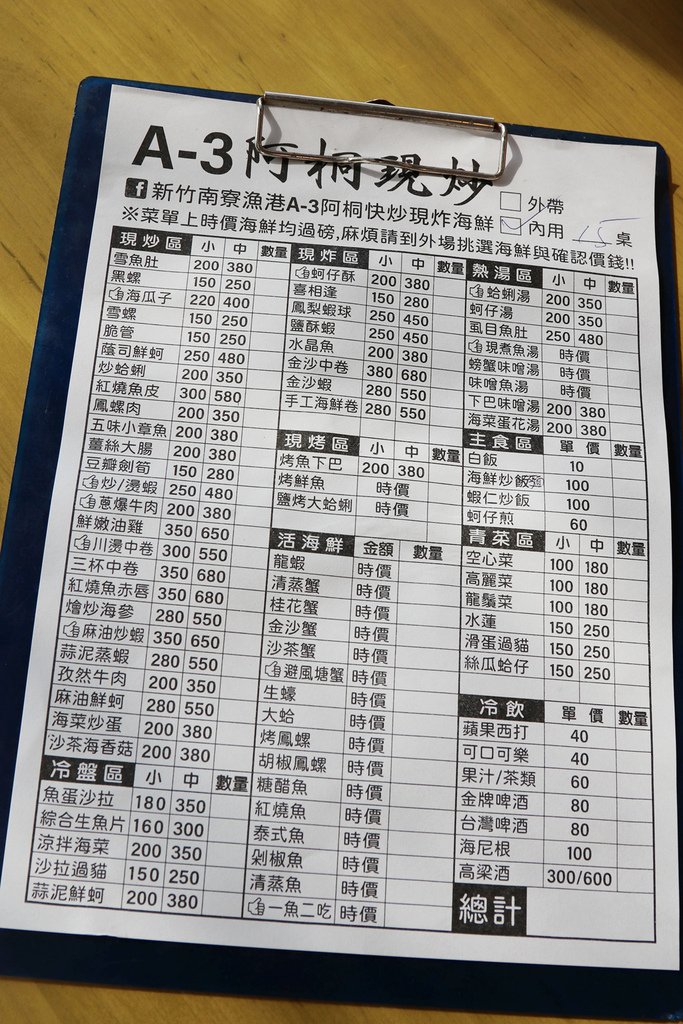 A-3阿桐現炒
新竹南寮漁港A-3阿桐快炒現炸海鮮
□外帶
☑內用 15 桌
※菜單上時價海鮮均過磅,麻煩請到外場挑選海鮮與確認價錢!!
現炒區 小 中 數量
雪魚肚 200 380
黑螺 150 250
海瓜子 220 400
雪螺 150 250
脆管 150 250
蔭司鮮蚵 250 480
炒蛤蜊 200 350
紅燒魚皮 300 580
鳳螺肉 200 350
五味小章魚 200 380
薑絲大腸 200 380
豆瓣劍筍 150 280
炒/燙蝦 250 480
蔥爆牛肉 200 380
鮮嫩油雞 350 650
川燙中卷 300 550
三杯中卷 350 680
紅燒魚赤唇 350 680
燴炒海參 280 550
麻油炒蝦 350 650
蒜泥蒸蝦 280 550
孜然牛肉 200 350
麻油鮮蚵 280 550
海菜炒蛋 200 380
沙茶海香菇 200 380
冷盤區 小 中 數量
魚蛋沙拉 180 350
綜合生魚片 160 300
涼拌海菜 200 350
沙拉過貓 150 250
蒜泥鮮蚵 200 380
現炸區 小 中 數量
蚵仔酥 200 380
喜相逢 150 280
鳳梨蝦球 250 450
鹽酥蝦 250 450
水晶魚 200 380
金沙中卷 380 680
金沙蝦 280 550
手工海鮮卷 280 550
現烤區 小 中 數量
烤魚下巴 200 380
烤鮮魚 時價
鹽烤大蛤蜊 時價
活海鮮 金額 數量
龍蝦 時價
清蒸蟹 時價
桂花蟹 時價
金沙蟹 時價
沙茶蟹 時價
避風塘蟹 時價
生蠔 時價
大蛤 時價
烤鳳螺 時價
胡椒鳳螺 時價
糖醋魚 時價
紅燒魚 時價
泰式魚 時價
剁椒魚 時價
清蒸魚 時價
一魚二吃 時價
熱湯區 小 中 數量
蛤蜊湯 200 350
蚵仔湯 200 350
虱目魚肚 250 480
現煮魚湯 時價
螃蟹味噌湯 時價
味噌魚湯 時價
下巴味噌湯 200 380
海菜蛋花湯 200 380
主食區 單價 數量
白飯 10
海鮮炒飯 100
蝦仁炒飯 100
蚵仔煎 60
青菜區 小 中 數量
空心菜 100 180
高麗菜 100 180
龍鬚菜 100 180
水蓮 150 250
滑蛋過貓 150 250
絲瓜蛤仔 150 250
冷飲 單價 數量
蘋果西打 40
可口可樂 40
果汁/茶類 60
金牌啤酒 80
台灣啤酒 80
海尼根 100
高梁酒 300/600
總計